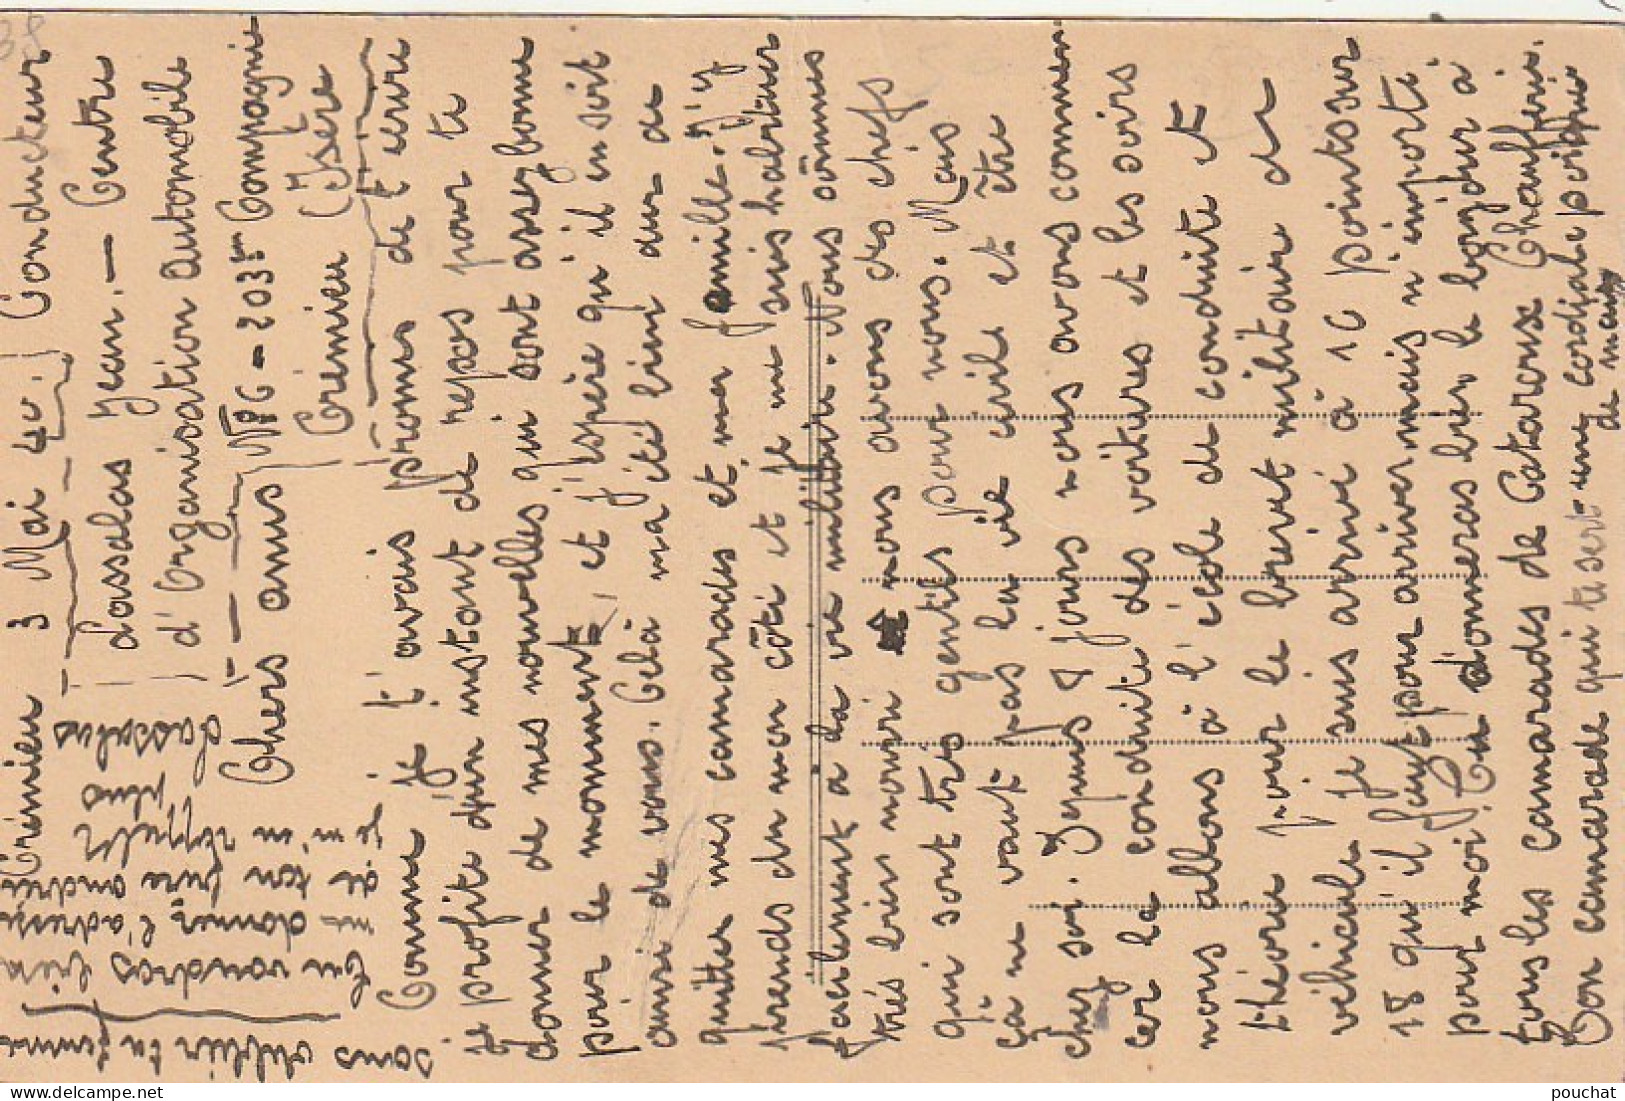 Crémieu 3 Mai 40. Conducteur
Lassalas Jean. — Centre
d'Organisation automobile
N° 6 - 203me Compagnie
Crémieu (Isère
Chers amis
Comme je t'avais promis de t'ecrire
je profite d'un instant de repos pour te
donner de mes nouvelles qui sont assez bonne
pour le momment, et j'espère qu'il en soit
ausi de vous. Celà m'a été bien dur de
quitter mes camarades et ma famille. J'y
prends du mon côté et je me suis habituer
facilement a la vie militaire. Nous sômmes
trés bien nouri nous avons des chefs
qui sont très gentils pour nous. Mais
ça ne vaut pas la vie civile et être
chez soi. Depuis 4 jours nous avons commen
cer la conduite des voitures et les soirs
nous allons à l'école de conduite et
théorie pour le brevet militaire de
véhicule je suis arrivé à 10 points sur
18 qu'il faut pour arriver mais n'importe
pour moi. Tu donneras bien le bonjour à
tous les camarades de Catarose Chauferie.
Ton camarade qui te sert une cordjale poignée
de main
Lassalas
Tu voudras bien
me donner l'adresse
de ton frère andré
je m'en rappelle
plus
sans oublier ta femme
pouchat